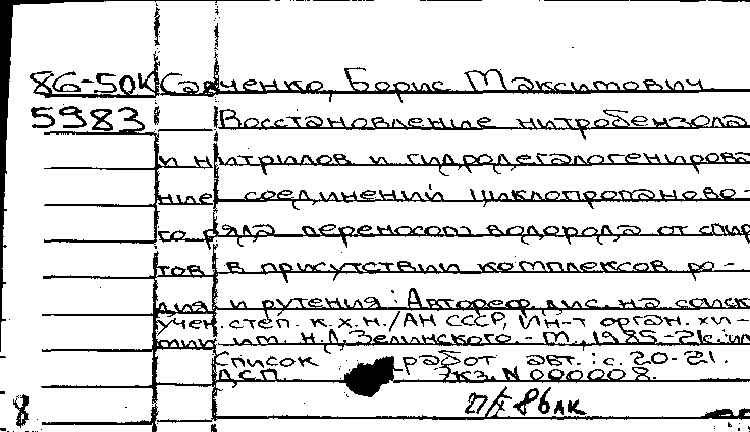 86-50К Савченко, Борис Максимович
5983 Восстановление нитробензола
и нитрилов и гидродегалогенирова
ние соединений циклопропаново-
го ряда переносом водорода от спир
тов в присутствии комплексов ро-
дия и рутения: Автореф. дис. на соиск
учен. степ. к.х.н./АН СССР, Ин-т орган. хи-
мии им. Н.Д. Зелинского. - М., 1985.-21с. ил
Список работ авт.: с. 20-21.
ДСП. Экз. N 000008.
8 86